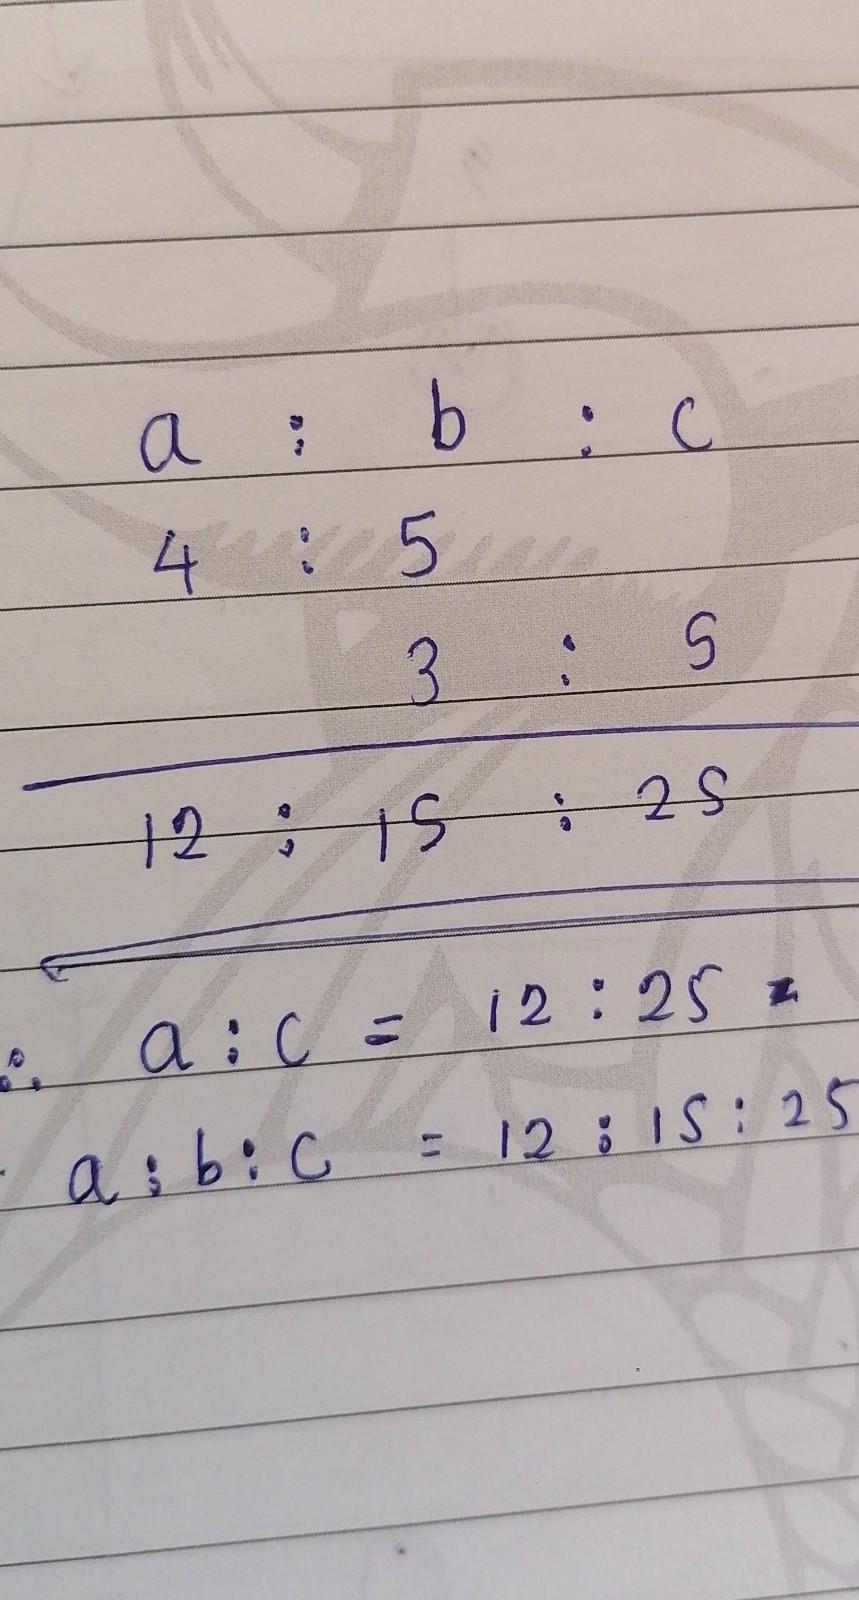 a : b : c
4 : 5
3 : 5
12 : 15 : 25
∴ a : c = 12 : 25
a : b : c = 12 : 15 : 25